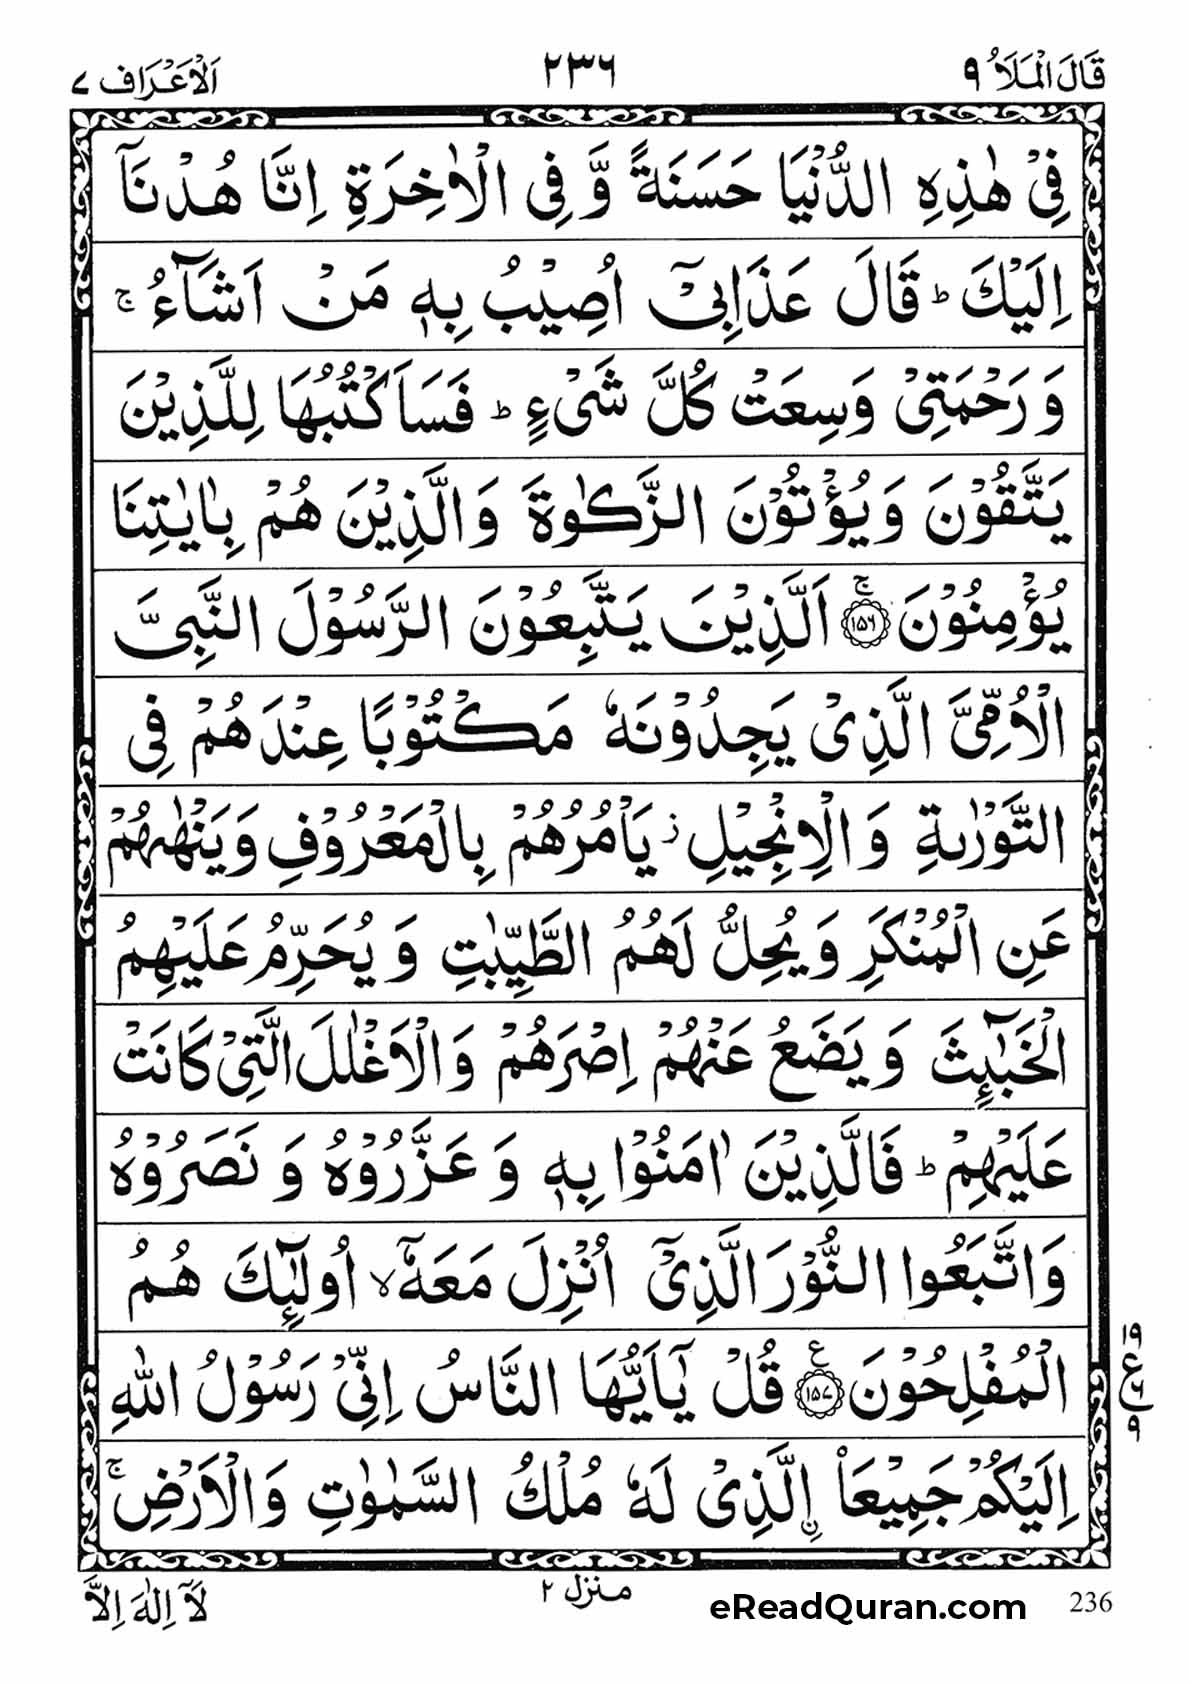 قَالَ الْمَلَاُ ٩ ٢٣٦ اَلْاَعْرَاف ٧
فِیْ هٰذِهِ الدُّنْیَا حَسَنَةً وَّ فِی الْاٰخِرَةِ اِنَّا هُدْنَاۤ
اِلَیْكَ ؕ قَالَ عَذَابِیْۤ اُصِیْبُ بِهٖ مَنْ اَشَآءُ ۚ
وَ رَحْمَتِیْ وَسِعَتْ كُلَّ شَیْءٍ ؕ فَسَاَكْتُبُهَا لِلَّذِیْنَ
یَتَّقُوْنَ وَ یُؤْتُوْنَ الزَّكٰوةَ وَ الَّذِیْنَ هُمْ بِاٰیٰتِنَا
یُؤْمِنُوْنَ ۚ ﴿۱۵۶﴾ اَلَّذِیْنَ یَتَّبِعُوْنَ الرَّسُوْلَ النَّبِیَّ
الْاُمِّیَّ الَّذِیْ یَجِدُوْنَهٗ مَكْتُوْبًا عِنْدَهُمْ فِی
التَّوْرٰىةِ وَ الْاِنْجِیْلِ ؗ یَاْمُرُهُمْ بِالْمَعْرُوْفِ وَ یَنْهٰىهُمْ
عَنِ الْمُنْكَرِ وَ یُحِلُّ لَهُمُ الطَّیِّبٰتِ وَ یُحَرِّمُ عَلَیْهِمُ
الْخَبٰٓىِٕثَ وَ یَضَعُ عَنْهُمْ اِصْرَهُمْ وَ الْاَغْلٰلَ الَّتِیْ كَانَتْ
عَلَیْهِمْ ؕ فَالَّذِیْنَ اٰمَنُوْا بِهٖ وَ عَزَّرُوْهُ وَ نَصَرُوْهُ
وَ اتَّبَعُوا النُّوْرَ الَّذِیْۤ اُنْزِلَ مَعَهٗۤ ۙ اُولٰٓىِٕكَ هُمُ
الْمُفْلِحُوْنَ ﴿۱۵۷﴾ ع قُلْ یٰۤاَیُّهَا النَّاسُ اِنِّیْ رَسُوْلُ اللّٰهِ
اِلَیْكُمْ جَمِیْعَا ِ۟الَّذِیْ لَهٗ مُلْكُ السَّمٰوٰتِ وَ الْاَرْضِ ۚ
١٩
ع
٦
٩
لَاۤ اِلٰهَ اِلَّا منزل ٢ eReadQuran.com 236